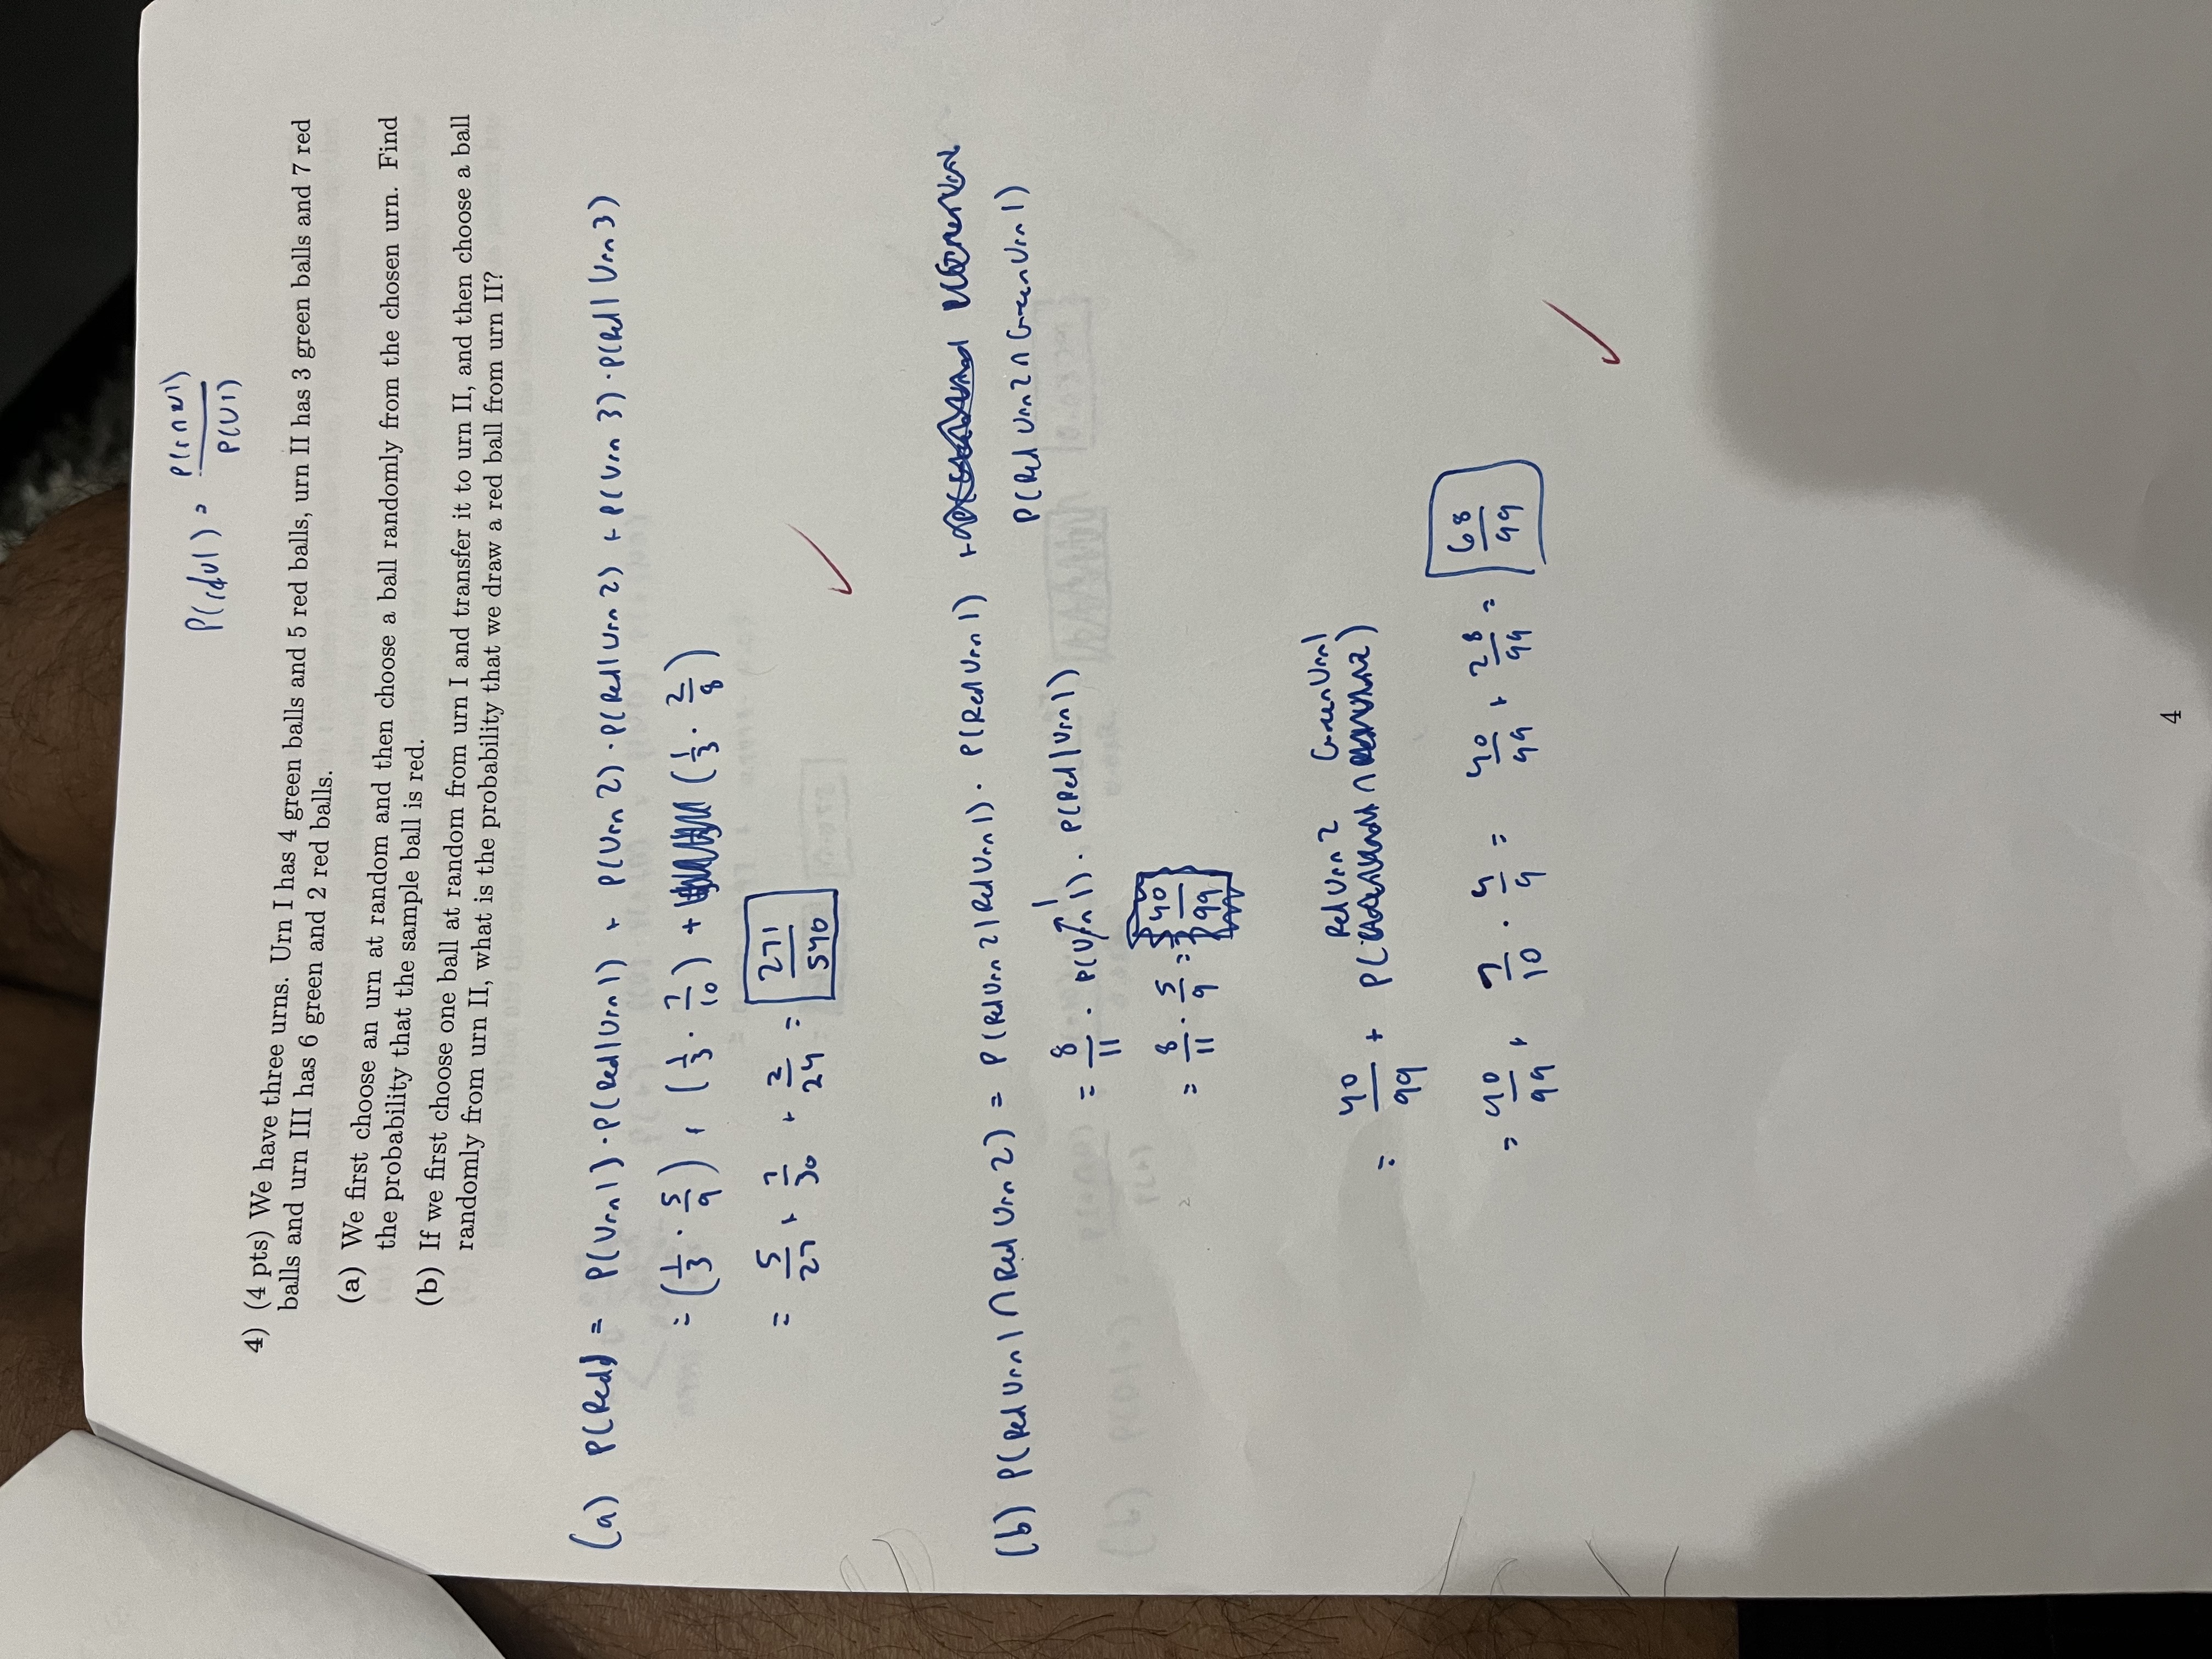 P(rdu1) = P(r∩u1) / P(U1)
4) (4 pts) We have three urns. Urn I has 4 green balls and 5 red balls, urn II has 3 green balls and 7 red
balls and urn III has 6 green and 2 red balls.
(a) We first choose an urn at random and then choose a ball randomly from the chosen urn. Find
the probability that the sample ball is red.
(b) If we first choose one ball at random from urn I and transfer it to urn II, and then choose a ball
randomly from urn II, what is the probability that we draw a red ball from urn II?
(a) P(Red) = P(Urn 1) · P(Red | Urn 1) + P(Urn 2) · P(Red | Urn 2) + P(Urn 3) · P(Red | Urn 3)
= (1/3 · 5/9) + (1/3 · 7/10) + (1/3 · 2/8)
= 5/27 + 7/30 + 2/24 = 271/540
(b) P(Red Urn 1 ∩ Red Urn 2) = P(Red Urn 2 | Red Urn 1) · P(Red Urn 1) +
P(Red Urn 2 ∩ Green Urn 1)
= 8/11 · P(Urn 1) 1 · P(Red | Urn 1)
= 8/11 · 5/9 = 40/99
Red Urn 2 Green Urn 1
= 40/99 + P( ∩ )
= 40/99 + 7/10 · 4/9 = 40/99 + 28/99 = 68/99
4